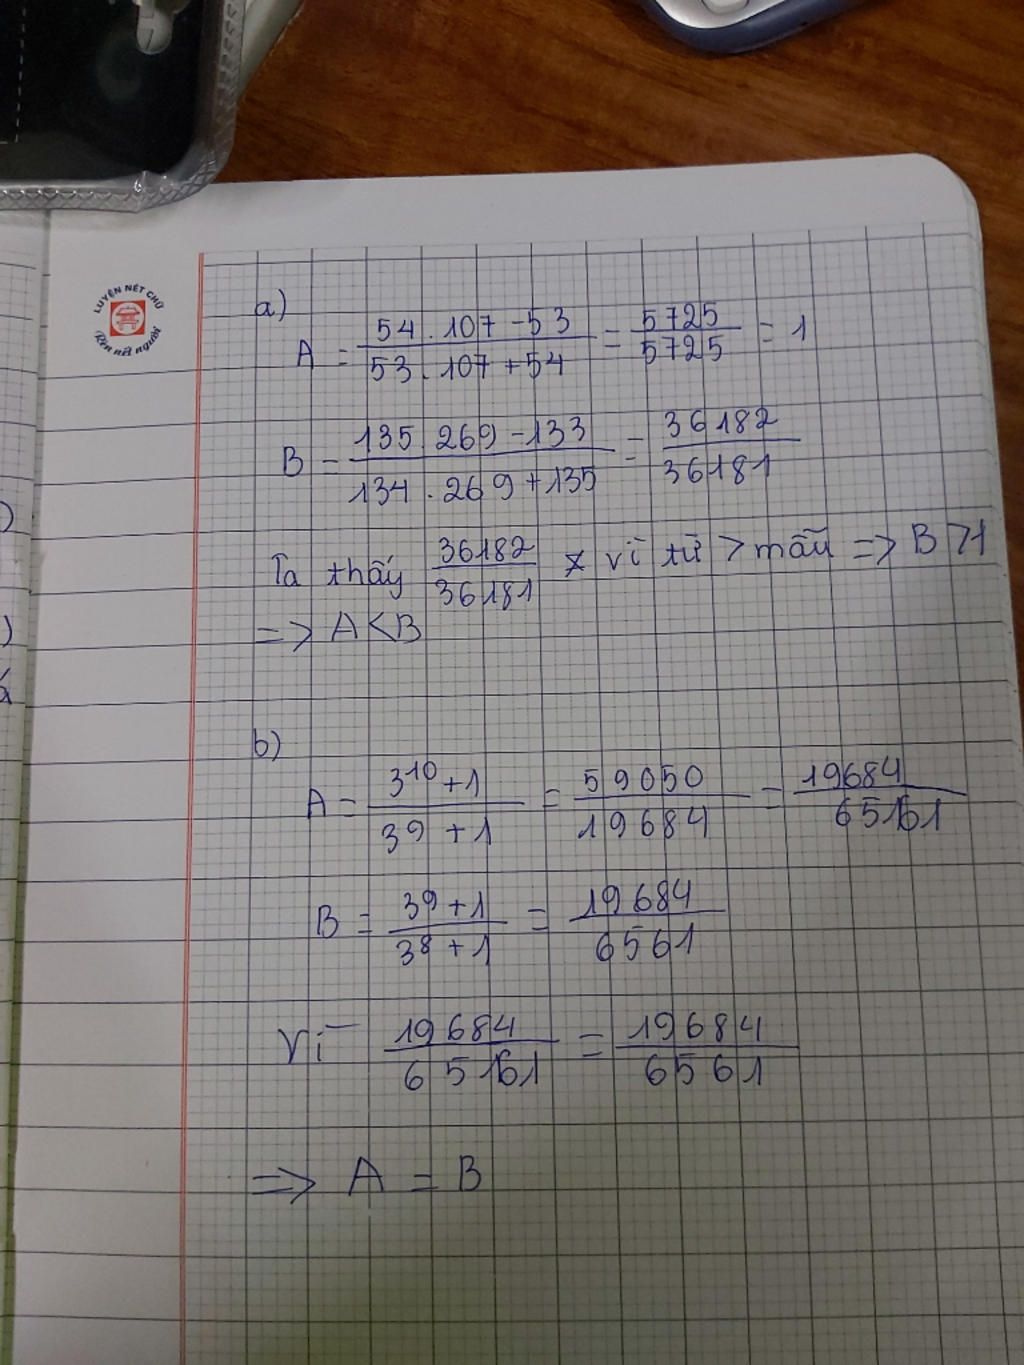 LUYỆN NÉT CHỮ
Rèn nết người
a)
A = \frac{54 . 107 - 53}{53 . 107 + 54} = \frac{5725}{5725} = 1
B = \frac{135 . 269 - 133}{134 . 269 + 135} = \frac{36182}{36181}
Ta thấy \frac{36182}{36181} vì tử > mẫu => B > 1
=> A < B
b)
A = \frac{3^{10} + 1}{3^9 + 1} = \frac{59050}{19684} = \frac{19684}{65161}
B = \frac{3^9 + 1}{3^8 + 1} = \frac{19684}{6561}
Vì \frac{19684}{65161} = \frac{19684}{6561}
=> A = B